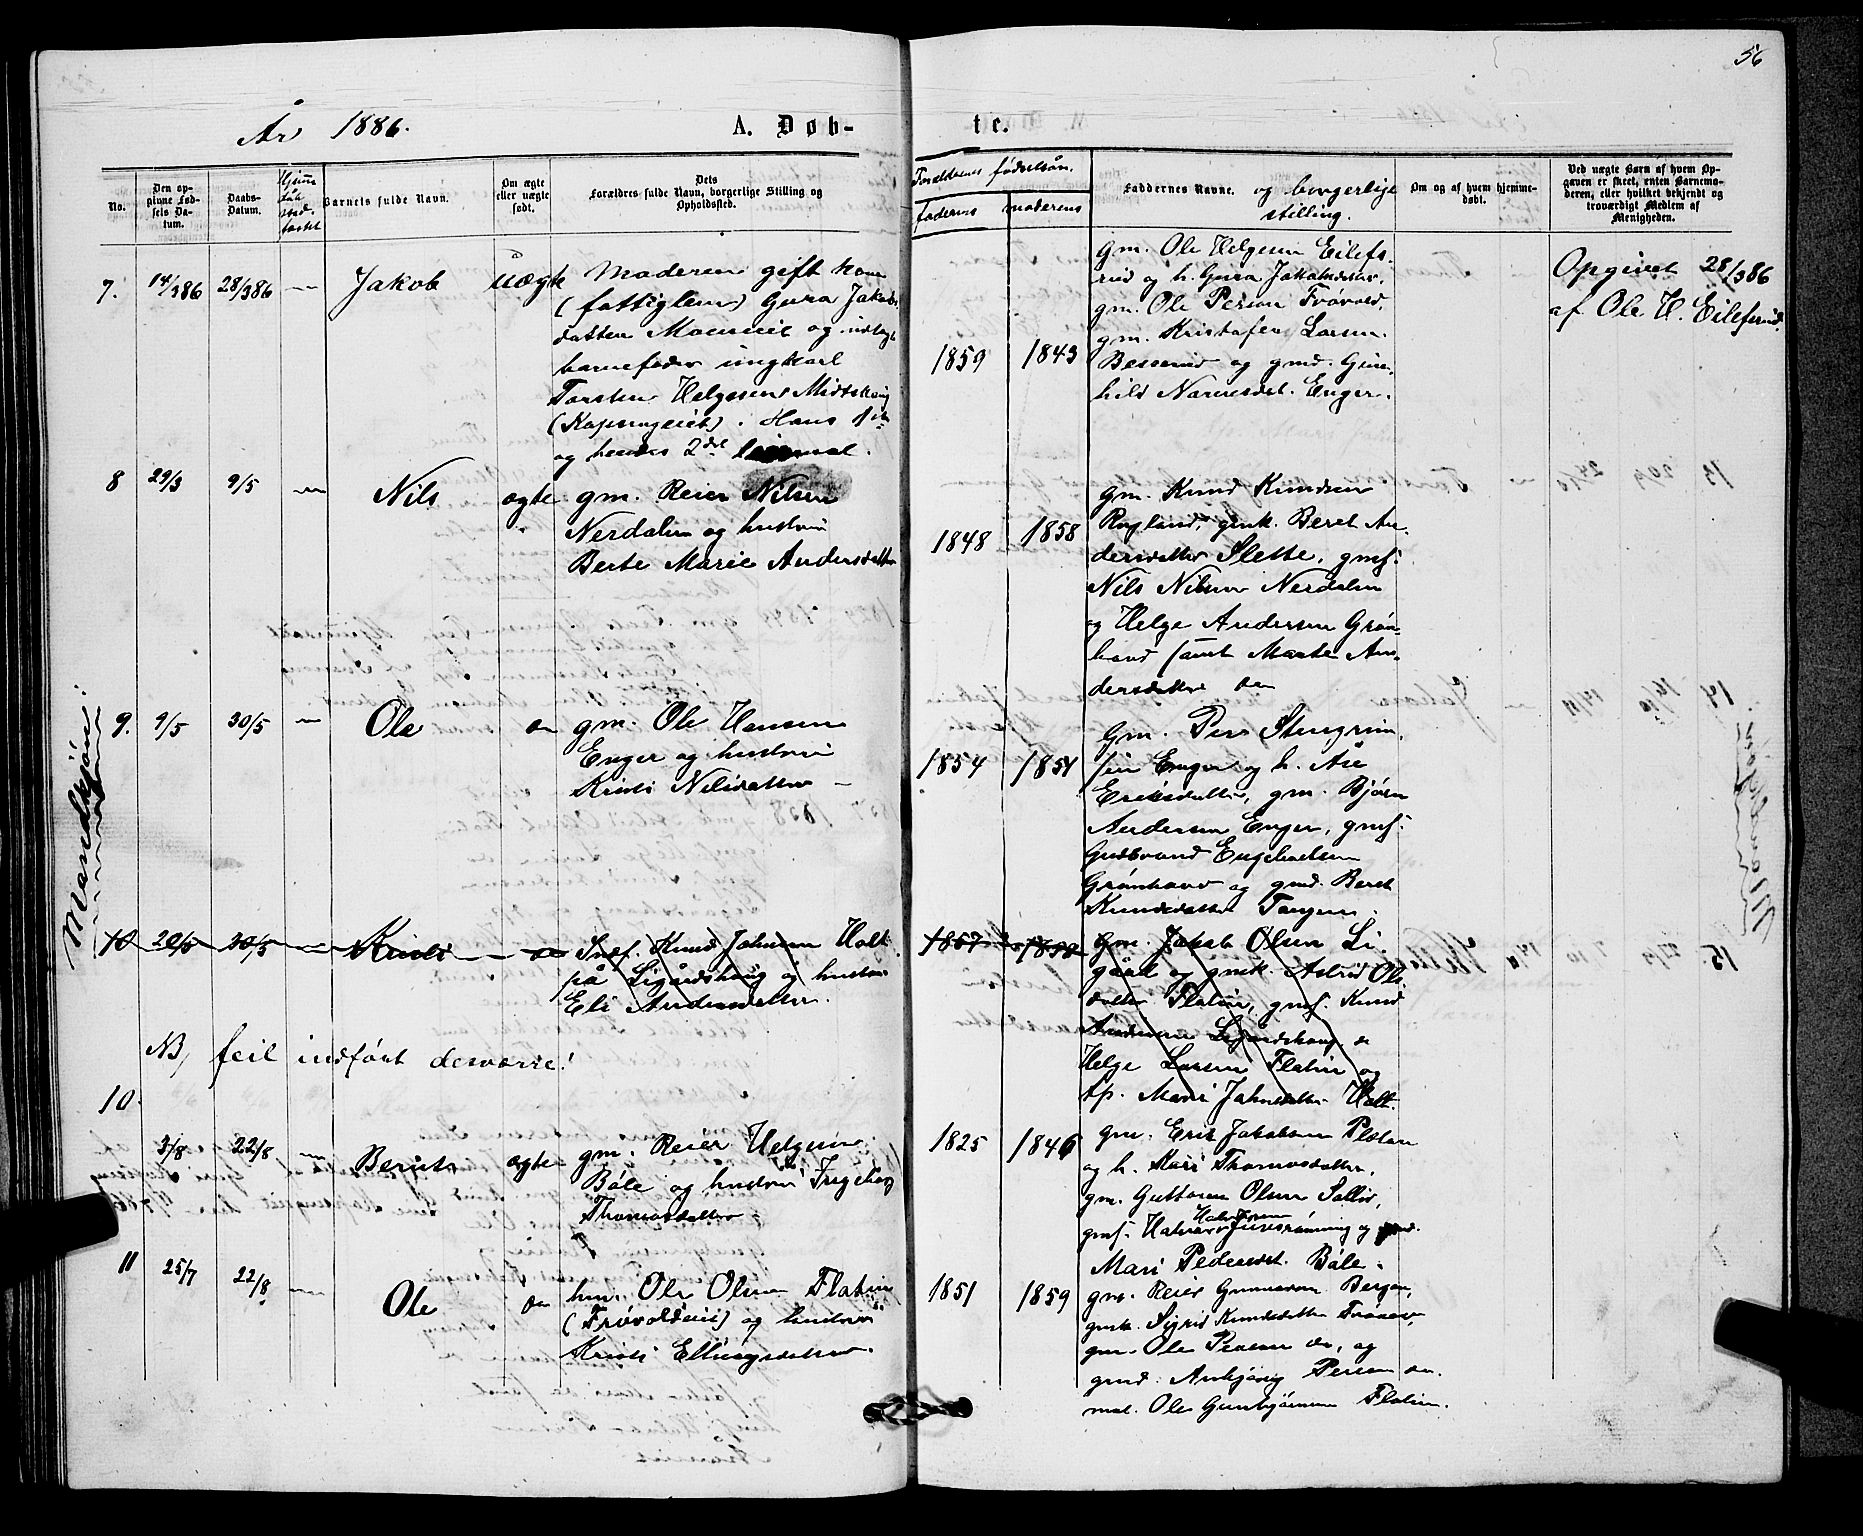 56
År 1886.
A. Døb-
te.
No.
Den op-
givne Fød-
sels Da-
tum.
Daabs-
Datum.
Barnets fulde Navn.
Om ægte
eller uægte
født.
Dets
Forældres fulde Navn, borgerlige Stilling og
Opholdssted.
Forældrenes fødselsår.
faderens
moderens
Faddernes Navne. og borgerlige
stilling.
Om og af hvem hjemme-
døbt.
Ved uægte Børn af hvem Op-
gaven er skeet, enten Barnemo-
deren, eller hvilket bekjendt og
troværdigt Medlem af
Menigheden.
Mandkjøn:
7. 14/3 86 28/3 86 — Jakob uægte
Moderen gift kone
(fattiglem) Gura Jakobs
datter Moeneie og udlagt
barnefader ungkarl
Torsten Helgesen Midtskoug
(Kopsengeiet). Hans 1ste
og hendes 2det leiermal.
1859 1843
gm. Ole Helgesen Eilefs-
rud og h. Gura Jakobsdatter,
gm. Ole Person Trøvold,
gm. Kristofer Larsen
Besserud og gmd. Gun-
hild Narvesdat. Enger.
Opgivet 28/3 86
af Ole H. Eilefsrud.
8 29/3 9/5 — Nils ægte
gm. Reier Nilsen
Nerdalen og hustru
Berte Marie Andersdatter
1848 1858
gm. Knud Knudsen
Rogland, gmk. Beret An-
dersdatter Slette, gmf.
Nils Nilsen Nerdalen
og Helge Andersen Grøn-
hovd samt Marte An-
dersdatter do
9. 9/5 30/5 — Ole do
gm. Ole Hansen
Enger og hustru
Kristi Nilsdatter —
1854 1854
gm. Per Stengrim-
sen Enger og h. Åse
Eriksdatter, gm. Bjørn
Andersen Enger, gmf.
Gudbrand Engebretsen
Grønhovd og gmd. Beret
Knudsdatter Tangen.
10 20/5 30/5 — Kristi — do
Inf. Knud Johnsen Holt
på Ligårdshaug og hustru
Eli Andersdatter.
1857 1858
gm. Jakob Olsen Li-
gård og gmk. Astrid Ols-
datter Flatin, gmf. Knud
Andersen Ligårdshaug do
Helge Larsen Flatin og
tp. Mari Johnsdatter Holt.
NB, feil indført desværre!
10
3/8 22/8 — Berit ægte
gm. Reier Helgesen
Bøle og hustru Ingeborg
Thomasdatter
1825 1846
gm. Erik Jakobsen Platan
og h. Kari Thomasdatter,
gm. Guttorm Olsen Sollid,
Mari Pedersdt. Bøle.
11 25/7 22/8 — Ole do
hm. Ole Olsen Flatin
(Trøvoldseie) og hustru
Kristi Ellingsdatter.
1851 1859
gm. Reier Gunnarson Bergan,
gmk. Sigrid Knudsdatter
gm. Ole Person do, og
gmd. Ambjørg Persen do.
Ole Gunbjørnsen Flatin.